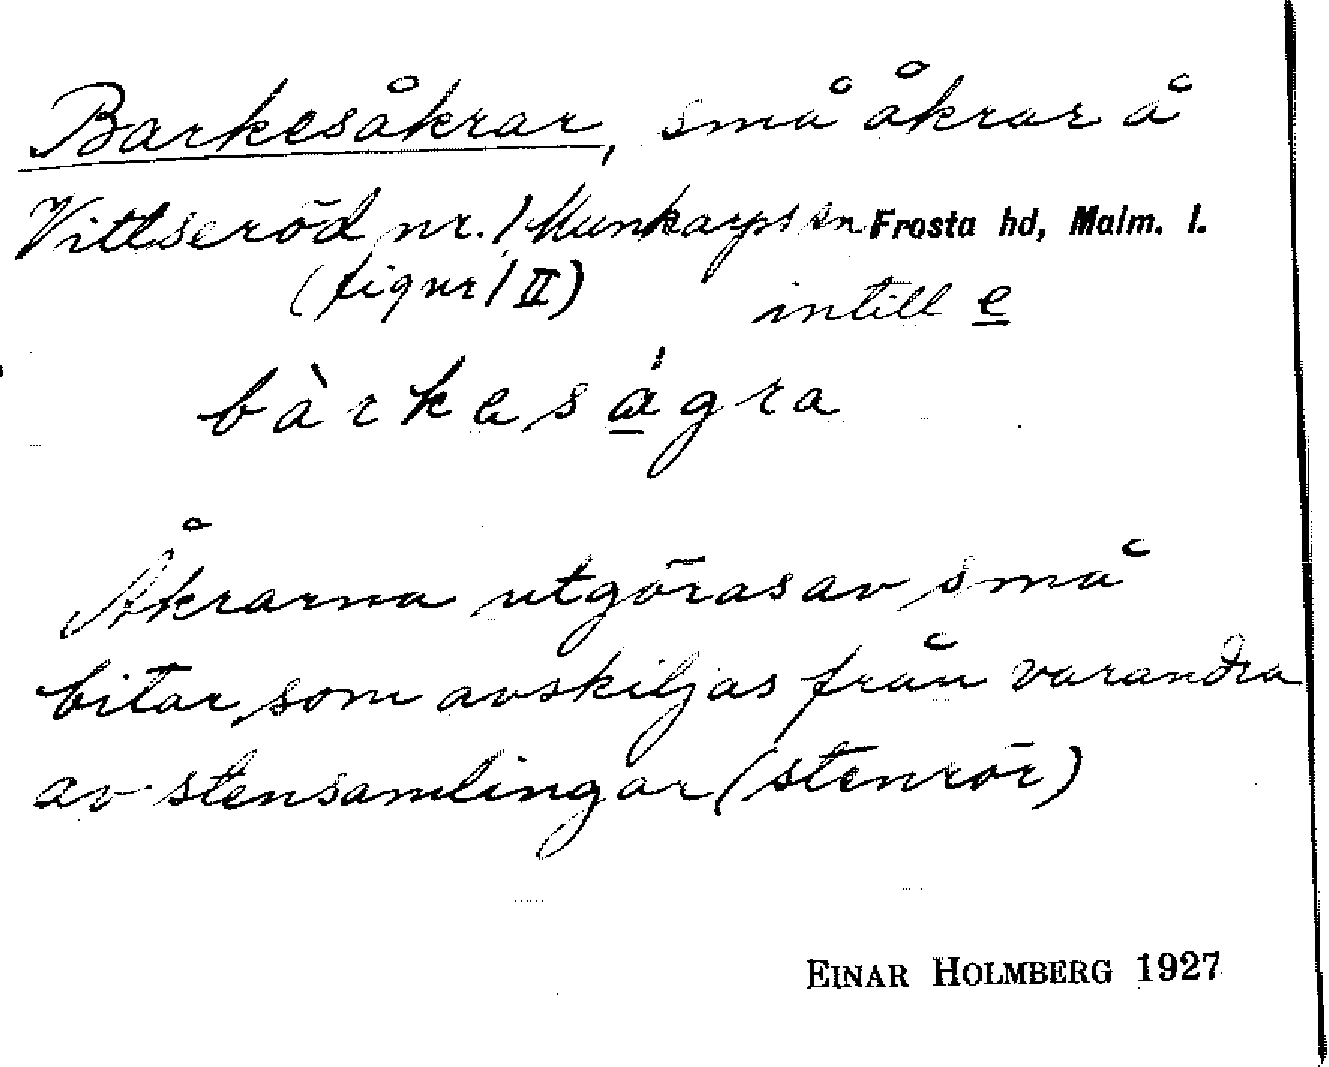 Barkesåkrar, små åkrar å
Vittseröd nr. 1 Munkarps sn Frosta hd, Malm. l.
(figur 1 II) intill e
bàrkeságra
Åkrarna utgöras av små
bitar, som avskiljas från varandra
av stensamlingar (stenrör)
EINAR HOLMBERG 1927